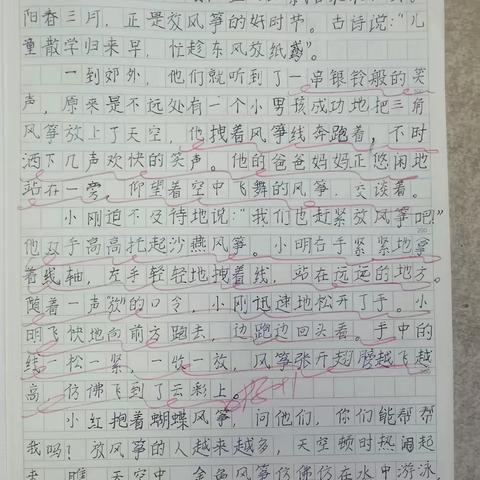 阳春三月，正是放风筝的好时节。古诗说："儿
童散学归来早，忙趁东风放纸鸢"。
一到郊外，他们就听到了一串银铃般的笑
声，原来是不远处有一个小男孩成功地把三角
风筝放上了天空，他拽着风筝线奔跑着，不时
洒下几声欢快的笑声。他的爸爸妈妈正悠闲地
站在一旁，仰望着空中飞舞的风筝，交谈着。
小刚迫不及待地说："我们也赶紧放风筝吧！"
他双手高高托起沙燕风筝。小明右手紧紧地拿
着线轴，左手轻轻地拽着线，站在远远的地方。
随着一声"放"的口令，小刚迅速地松开了手。小
明飞快地向前方跑去，边跑边回头看。手中的
线一松一紧，一收一放，风筝张开翅膀越飞越
高，仿佛飞到了云彩上。
小红抱着蝴蝶风筝，问他们，你们能帮帮
我吗？放风筝的人越来越多，天空顿时热闹起
来，瞧，天空中，金鱼风筝仿佛仿在水中游泳，